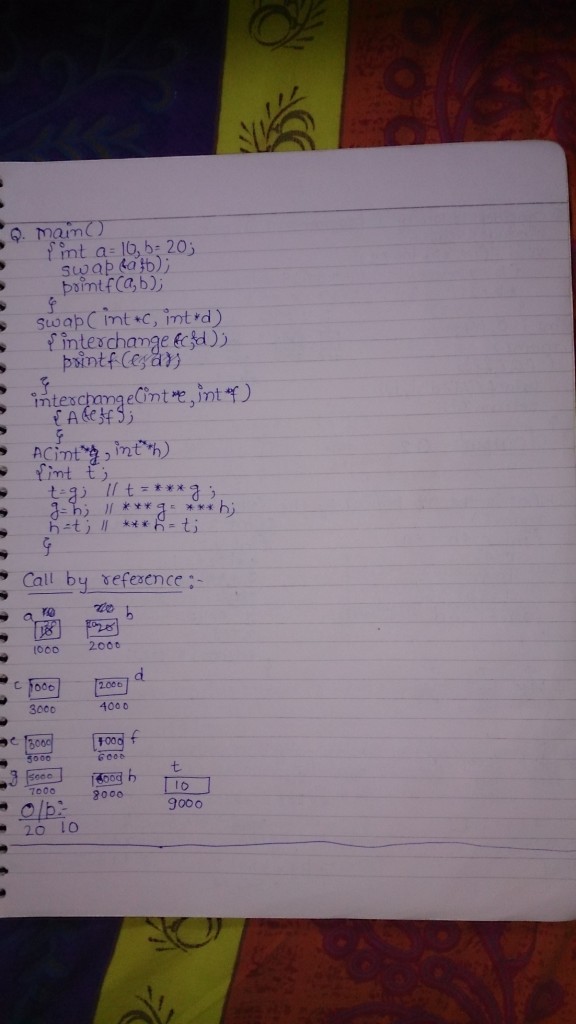 Q. main()
{ int a=10, b=20;
swap(&a,&b);
printf(a,b);
}
swap( int *c, int *d)
{ interchange(&c,&d);
printf(c,d);
}
interchange(int **e, int *f)
{ A(&e,&f);
}
A(int **g, int **h)
{ int t;
t=g; // t = *** g ;
g=h; // *** g = *** h;
h=t; // *** h = t;
}
Call by reference :-
a b
1000 2000
c 1000 2000 d
3000 4000
e 3000 4000 f
5000 6000
g 5000 6000 h t
7000 8000 10
O/p:- 9000
20 10